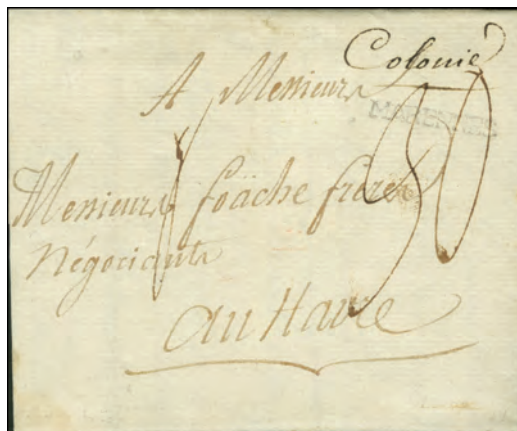 Colonie
A Messieurs
MARENNES
Messieurs foäche freres
Négociants
au Havre